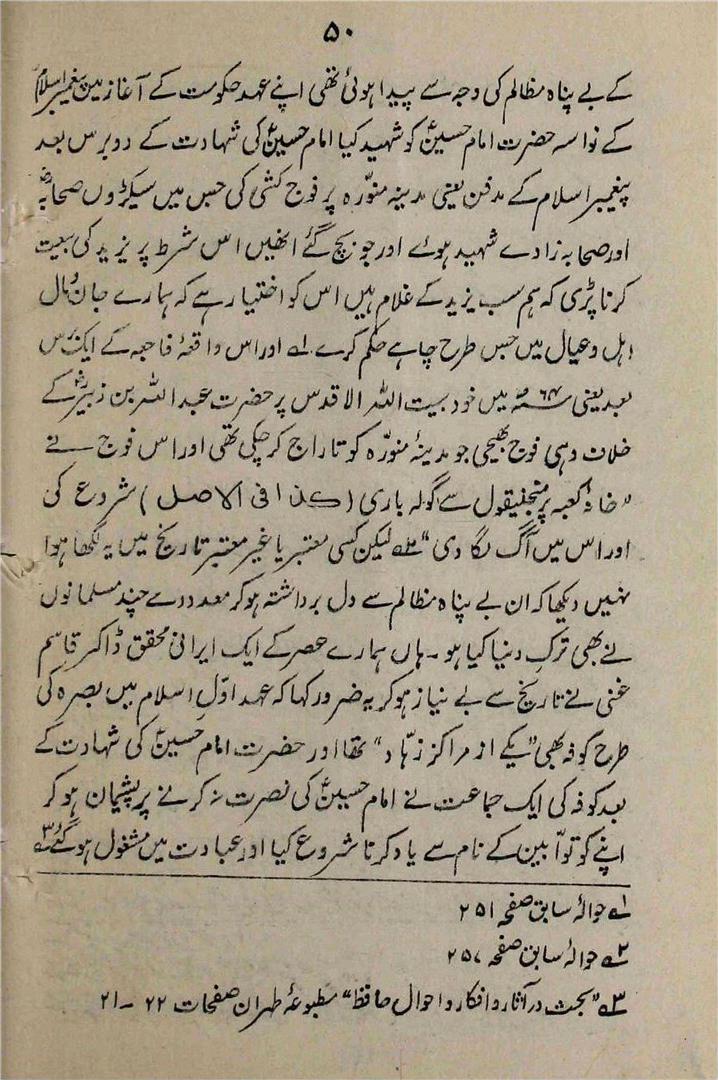 ۵۰
کے بے پناہ مظالم کی وجہ سے پیدا ہوئی تھی اپنے عہد حکومت کے آغاز میں پیغمبر اسلامؐ
کے نواسہ حضرت امام حسینؑ کو شہید کیا امام حسینؑ کی شہادت کے دو برس بعد
پیغمبر اسلام کے مدفن یعنی مدینہ منوّرہ پر فوج کشی کی جس میں سیکڑوں صحابہؓ
اور صحابہ زادے شہید ہوئے اور جو بچ گئے انھیں اس شرط پر یزید کی بیعت
کرنا پڑی کہ ہم سب یزید کے غلام ہیں اس کو اختیار ہے کہ ہمارے جان و مال
اہل و عیال میں جس طرح چاہے حکم کرے ۱؎ اور اس واقعۂ فاجعہ کے ایک برس
بعد یعنی ۶۴ھ میں خود بیت اللہ الاقدس پر حضرت عبد اللہ بن زبیرؓ کے
خلاف وہی فوج بھیجی جو مدینۂ منورہ کو تاراج کر چکی تھی اور اس فوج نے
"خانۂ کعبہ پر منجنیقول سے گولہ باری (کذا فی الاصل) شروع کی
اور اس میں آگ لگا دی" ۲؎ لیکن کسی معتبر یا غیر معتبر تاریخ میں یہ لکھا ہوا
نہیں دیکھا کہ ان بے پناہ مظالم سے دل برداشتہ ہو کر معدودے چند مسلمانوں
نے بھی ترکِ دنیا کیا ہو ۔ ہاں ہمارے عصر کے ایک ایرانی محقق ڈاکٹر قاسم
غنی نے تاریخ سے بے نیاز ہو کر یہ ضرور کہا کہ عہد اوّلِ اسلام میں بصرہ کی
طرح کوفہ بھی "یکے از مراکز زہّاد" تھا اور حضرت امام حسینؑ کی شہادت کے
بعد کوفہ کی ایک جماعت نے امام حسینؑ کی نصرت نہ کرنے پر پشیمان ہو کر
اپنے کو توّابین کے نام سے یاد کرنا شروع کیا اور عبادت میں مشغول ہو گئے ۳؎
۱؎ حوالۂ سابق صفحہ ۲۵۱
۲؎ حوالۂ سابق صفحہ ۲۵۷
۳؎ "بحث در آثار و افکار و احوال حافظ" مطبوعۂ طہران صفحات ۲۲ ۔ ۲۱